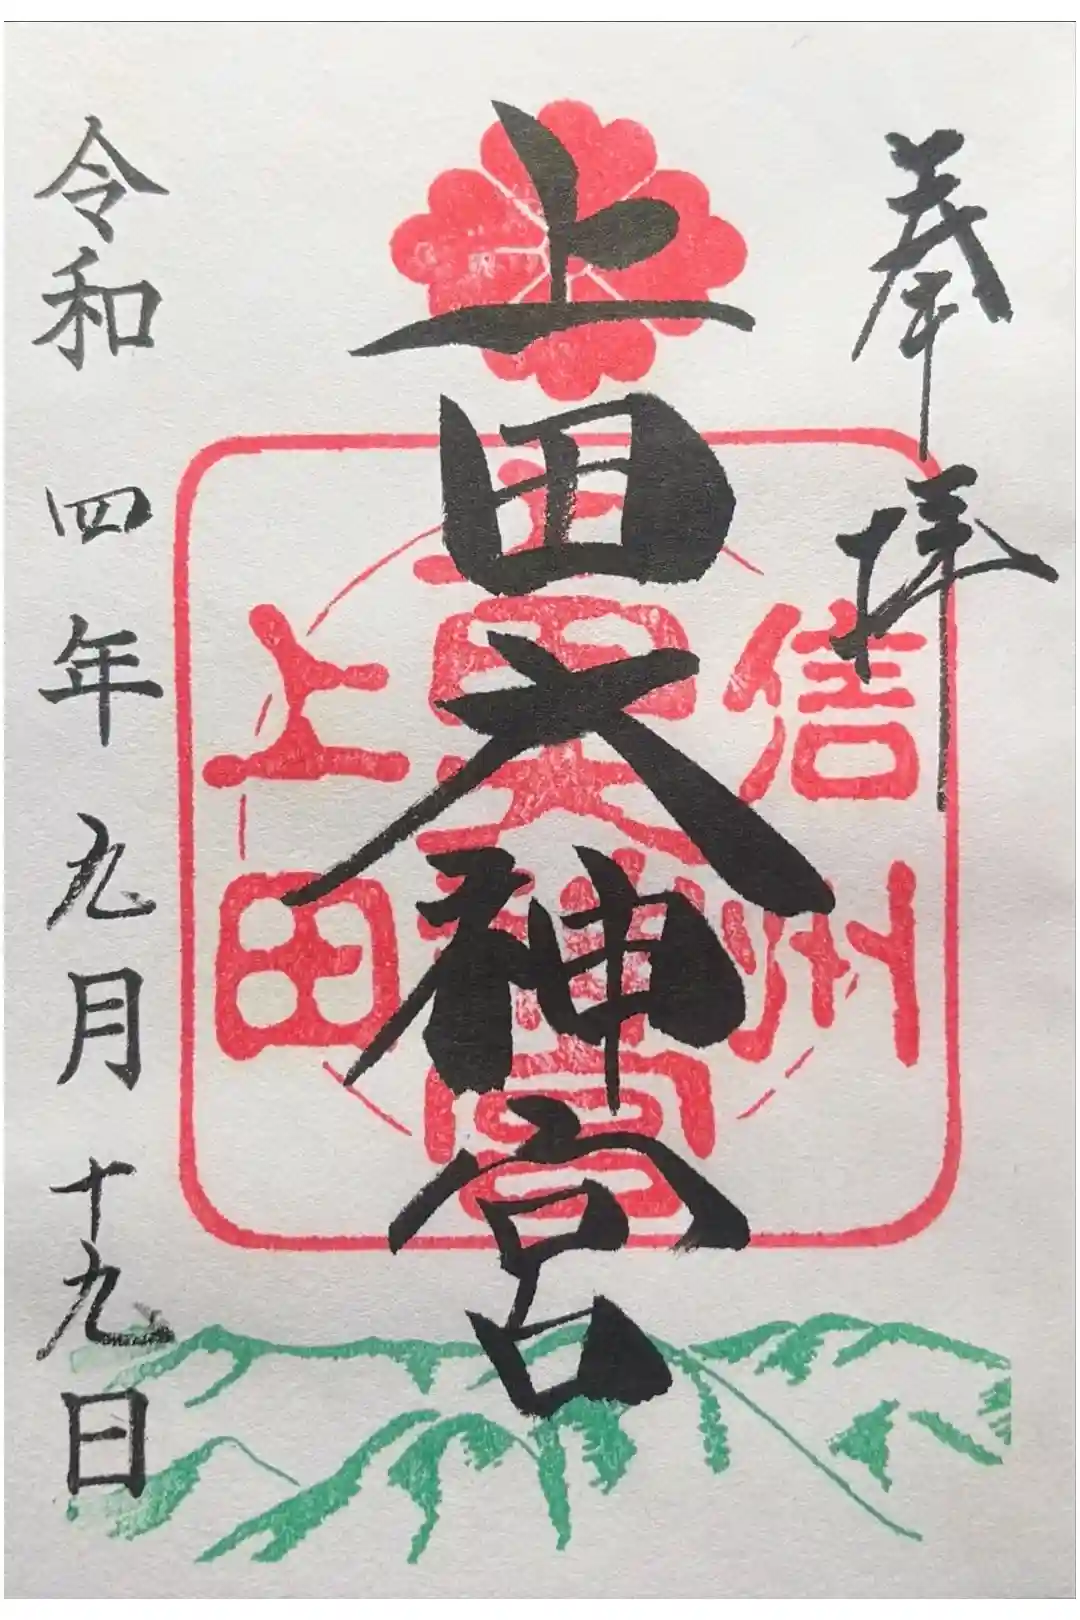 奉拝
上田大神宮
信州
上田大神宮
上田
令和四年九月十九日